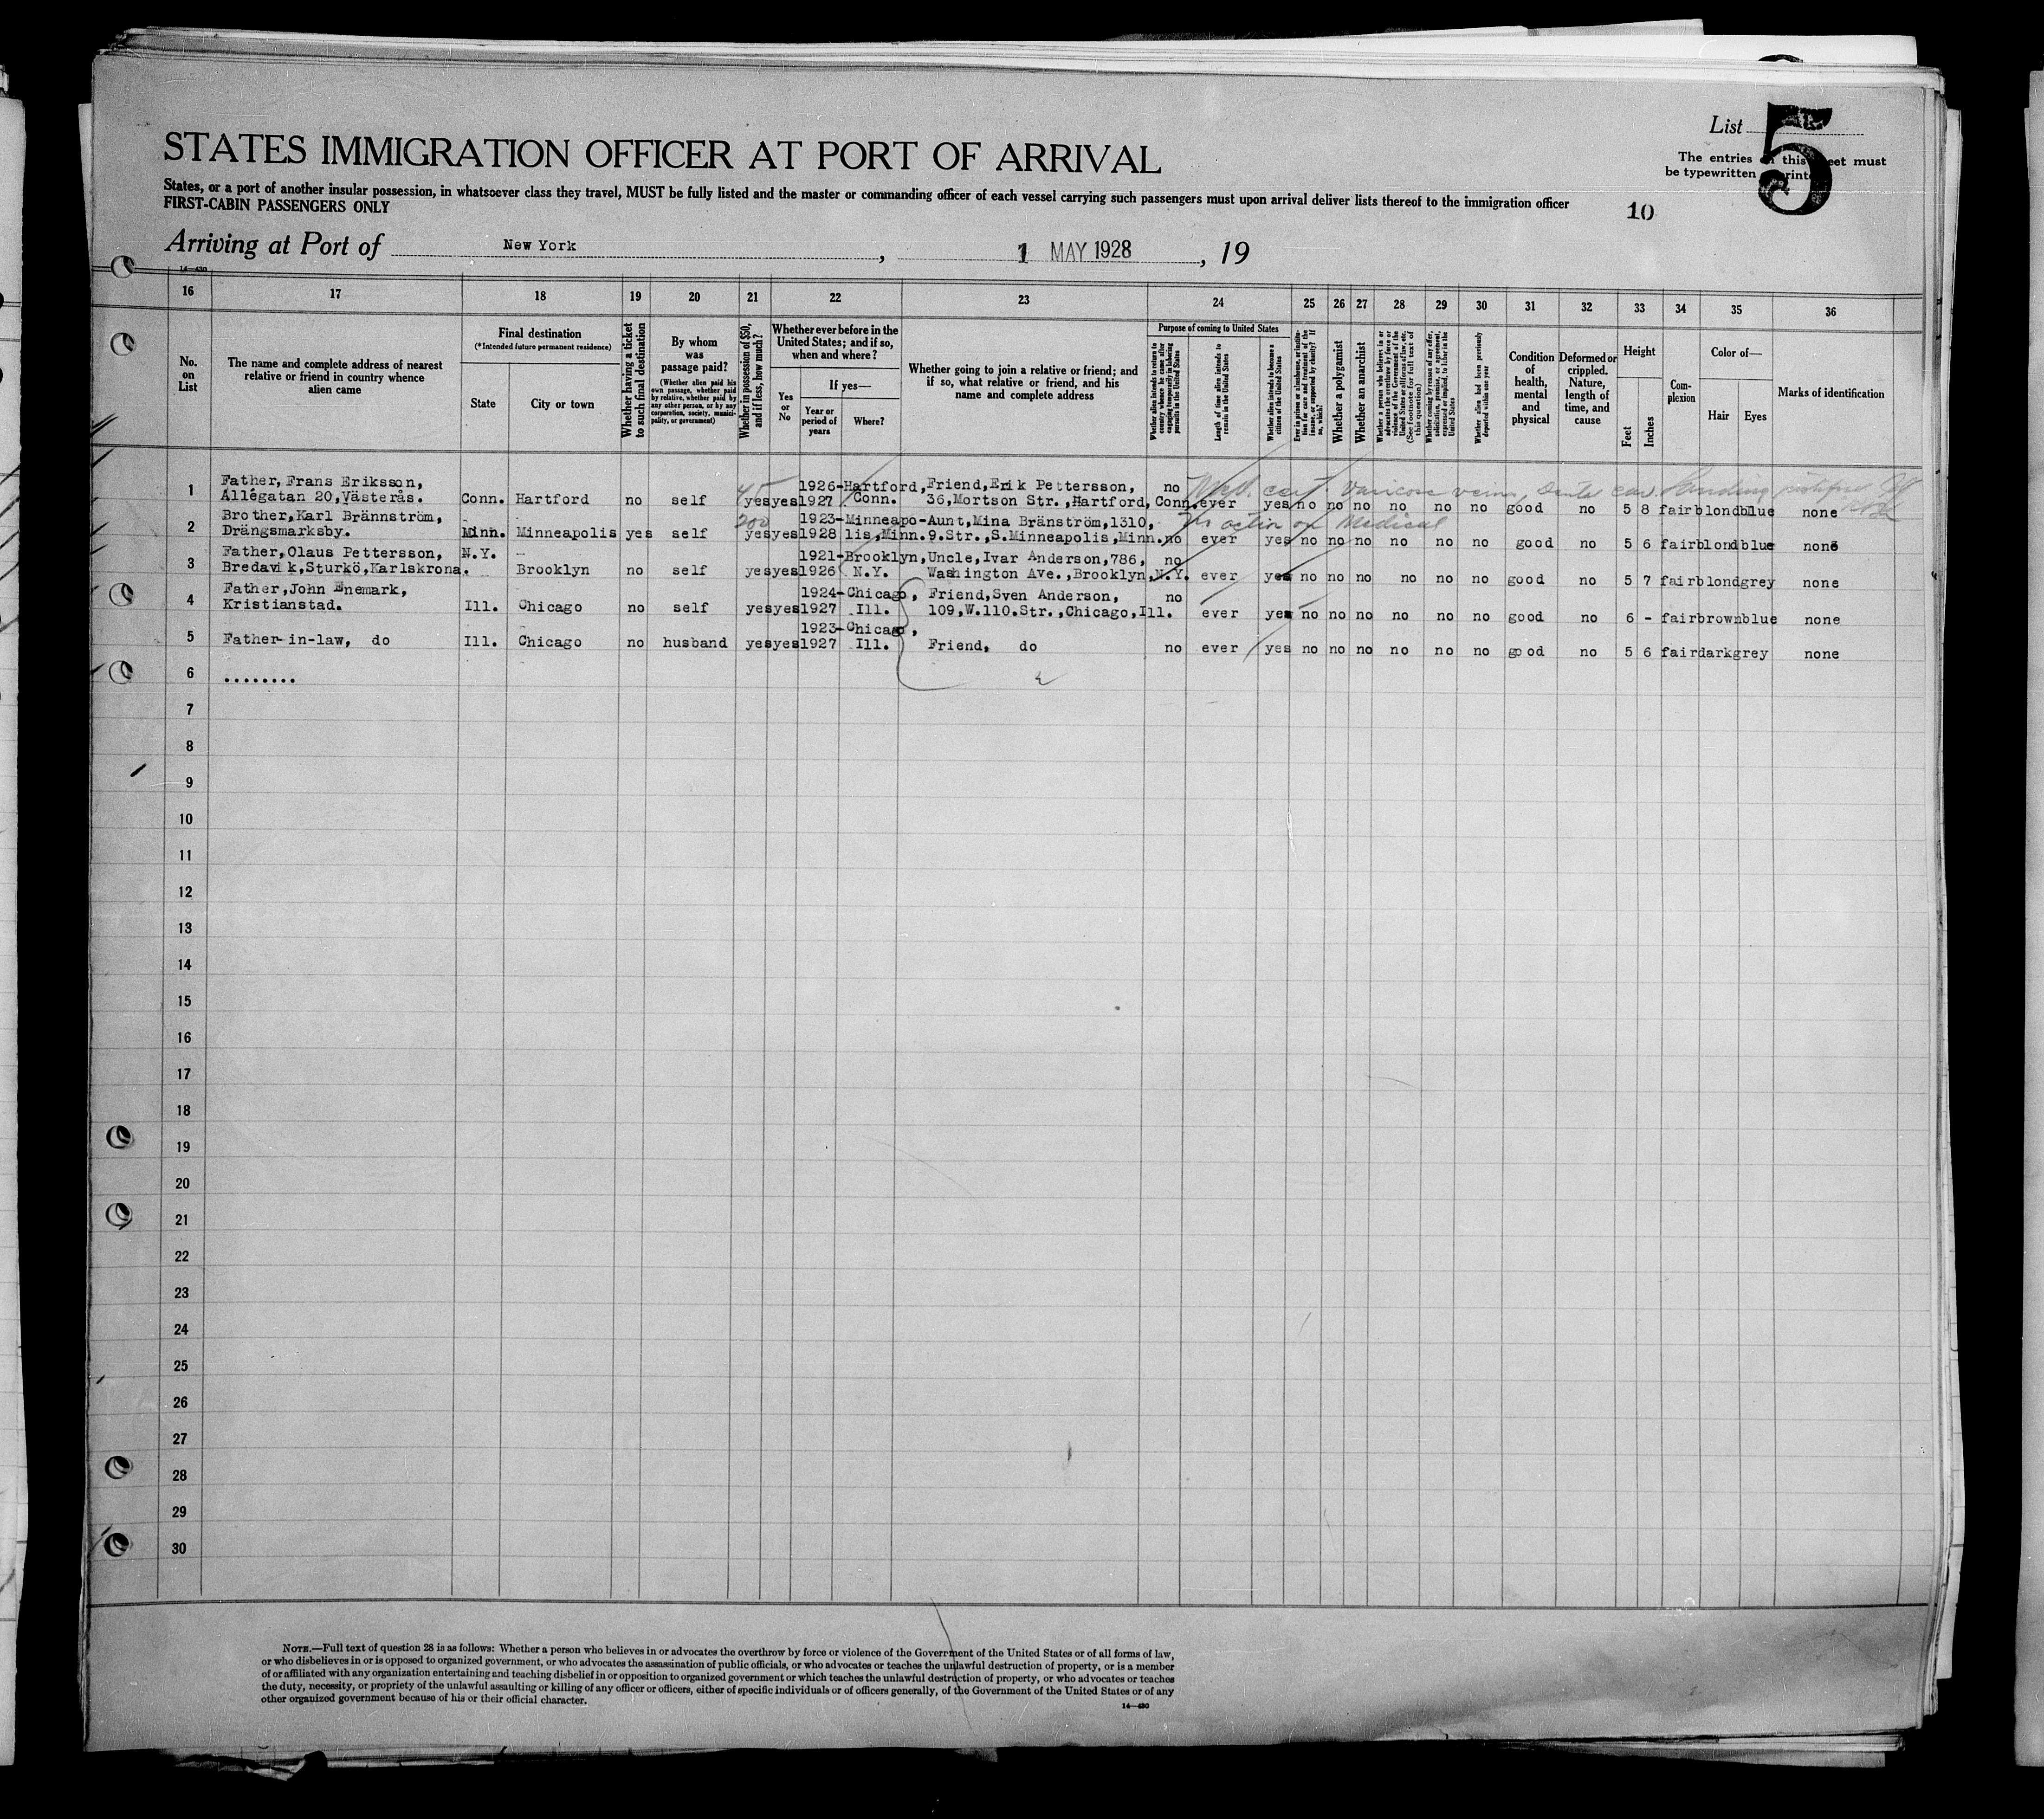 STATES IMMIGRATION OFFICER AT PORT OF ARRIVAL
List
5
The entries on this sheet must
be typewritten or printed
States, or a port of another insular possession, in whatsoever class they travel, MUST be fully listed and the master or commanding officer of each vessel carrying such passengers must upon arrival deliver lists thereof to the immigration officer
FIRST-CABIN PASSENGERS ONLY
10
Arriving at Port of New York, 1 MAY 1928, 19
14—430
16 17 18 19 20 21 22 23 24 25 26 27 28 29 30 31 32 33 34 35 36
No. on List
The name and complete address of nearest relative or friend in country whence alien came
Final destination
(*Intended future permanent residence)
State
City or town
Whether having a ticket to such final destination
By whom was passage paid?
(Whether alien paid his own passage, whether paid by relative, whether paid by any other person, or by any corporation, society, municipality, or government)
Whether in possession of $50, and if less, how much?
Whether ever before in the United States; and if so, when and where?
Yes or No
If yes—
Year or period of years
Where?
Whether going to join a relative or friend; and if so, what relative or friend, and his name and complete address
Purpose of coming to United States
Whether alien intends to return to country whence he came after engaging temporarily in laboring pursuits in the United States
Length of time alien intends to remain in the United States
Whether alien intends to become a citizen of the United States
Ever in prison or almshouse, or institution for care and treatment of the insane, or supported by charity? If so, which?
Whether a polygamist
Whether an anarchist
Whether a person who believes in or advocates the overthrow by force or violence of the Government of the United States or all forms of law, etc. (See footnote for full text of this question)
Whether coming by reason of any offer, solicitation, promise, or agreement, expressed or implied, to labor in the United States
Whether alien had been previously deported within one year
Condition of health, mental and physical
Deformed or crippled. Nature, length of time, and cause
Height
Feet
Inches
Complexion
Color of—
Hair
Eyes
Marks of identification
Med. cert. varicose veins, Dental car. Landing
1 Father, Frans Eriksson, Allégatan 20, Västerås. Conn. Hartford no self 45 yes yes 1926-1927 Hartford, Conn. Friend, Erik Pettersson, 36, Mortson Str., Hartford, Conn. no ever yes no no no no no no good no 5 8 fair blond blue none
No action on Medical
2 Brother, Karl Brännström, Drängsmarksby. Minn. Minneapolis yes self 200 yes yes 1923-1928 Minneapolis, Minn. Aunt, Mina Bränström, 1310, 9. Str., S. Minneapolis, Minn. no ever yes no no no no no no good no 5 6 fair blond blue none
3 Father, Olaus Pettersson, Bredavik, Sturkö, Karlskrona. N.Y. - Brooklyn no self yes yes 1921-1926 Brooklyn, N.Y. Uncle, Ivar Anderson, 786, Washington Ave., Brooklyn, N.Y. no ever yes no no no no no no good no 5 7 fair blond grey none
4 Father, John Enemark, Kristianstad. Ill. Chicago no self yes yes 1924-1927 Chicago, Ill. Friend, Sven Anderson, 109, W. 110. Str., Chicago, Ill. no ever yes no no no no no no good no 6 - fair brown blue none
5 Father-in-law, do Ill. Chicago no husband yes yes 1923-1927 Chicago, Ill. Friend, do no ever yes no no no no no no good no 5 6 fair dark grey none
6 ........
7
8
9
10
11
12
13
14
15
16
17
18
19
20
21
22
23
24
25
26
27
28
29
30
NOTE.—Full text of question 28 is as follows: Whether a person who believes in or advocates the overthrow by force or violence of the Government of the United States or of all forms of law,
or who disbelieves in or is opposed to organized government, or who advocates the assassination of public officials, or who advocates or teaches the unlawful destruction of property, or is a member
of or affiliated with any organization entertaining and teaching disbelief in or opposition to organized government or which teaches the unlawful destruction of property, or who advocates or teaches
the duty, necessity, or propriety of the unlawful assaulting or killing of any officer or officers, either of specific individuals or of officers generally, of the Government of the United States or of any
other organized government because of his or their official character.
14—430